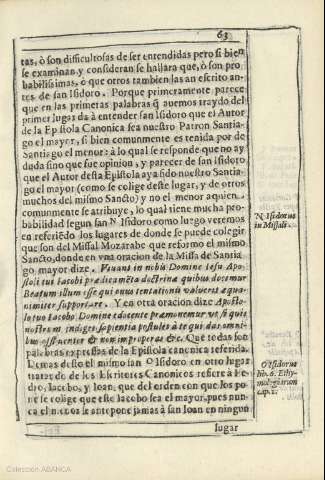 63
tas, ò son difficultosas de ser entendidas pero si bien
se examinan, y consideran se hallara que, ò son pro-
babilissimas, o que otros tambien las an escrito an-
tes de san Isidoro. Porque primeramente parece
que en las primeras palabras q̃ auemos traydo del
primer lugar da à entender san Isidoro que el Autor
de la Epistola Canonica sea nuestro Patron Santia-
go el mayor, si bien comunmente es tenida por de
Santiago el menor: à lo qual se responde que no ay
duda sino que fue opinion, y parecer de san Isidoro
que el Autor desta Epistola aya sido nuestro Santia-
go el mayor (como se colige deste lugar, y de otros
muchos del mismo Sancto) y no el menor a quien
comunmente se atribuye, lo qual tiene mucha pro-
babilidad segun san Isidoro como luego veremos
en refiriẽdo los lugares de donde se puede colegir
que son del Missal Mozarabe que reformo el mismo
Sancto, donde en vna oracion de la Missa de Santia
go mayor dize. Viuant in nobis Domine Iesu Apo-
stoli tui Iacobi prædicamẽta doctrina quibus docemur
Beatum illum esse qui onus tentationis valuerit æqua-
nimiter supportare. Y en otra oracion dize Apostolo
tuo Iacobo Domine edocente præmonemur vt, si quis
nostrum indiget sapientia postulet à te qui das omni-
bus affluenter & non improperas &c. Que todas son
palabras expressas de la Epistola canonica referida.
Demas desto el mismo san Isidoro en otro lugar
tratando de los Escritores Canonicos refiere à Pe-
dro, Iacobo, y Ioan, que del orden con que los po-
ne se colige que este Iacobo sea el mayor, pues nun-
ca el menor se antepone jamas à san Ioan en ningun
lugar
N. Isidorus
in Missali.
Isidorus
lib. 6. Ethy-
mologiarum
cap. 2.
Colección ABANCA